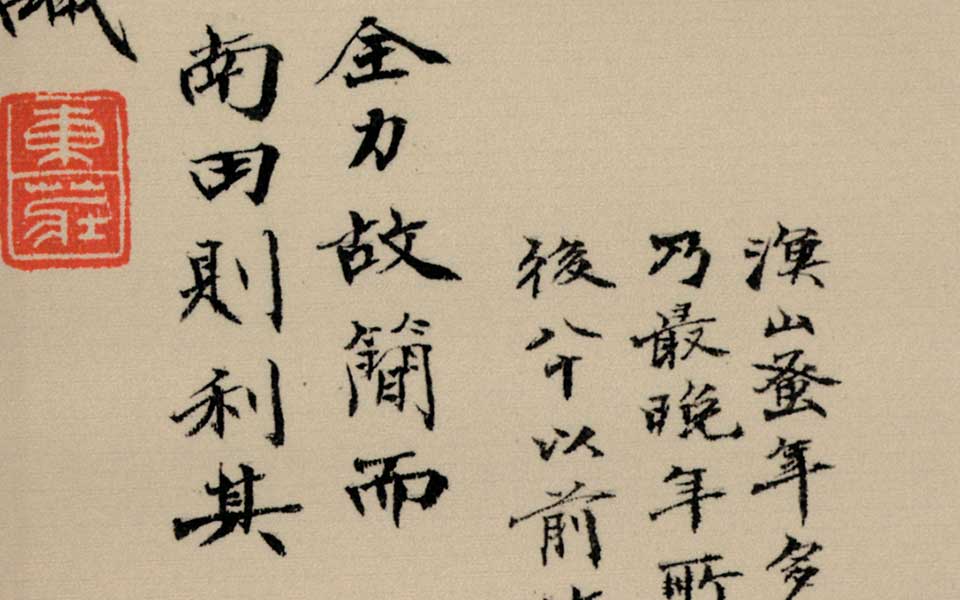 漁山蚤年多
乃最晚年所
後八十以前
全力故簡而
南田則利其
東莊